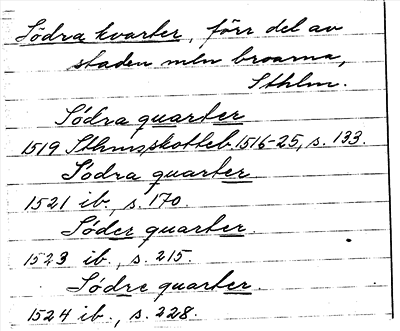 Södra kvarter, förr del av
staden mln broarna,
Sthlm.
Södra quarter
1519 Sthmsskotteb. 1516-25, s. 133.
Södra quarter
1521 ib., s. 170.
Söder quarter.
1523 ib., s. 215.
Södre quarter.
1524 ib., s. 228.